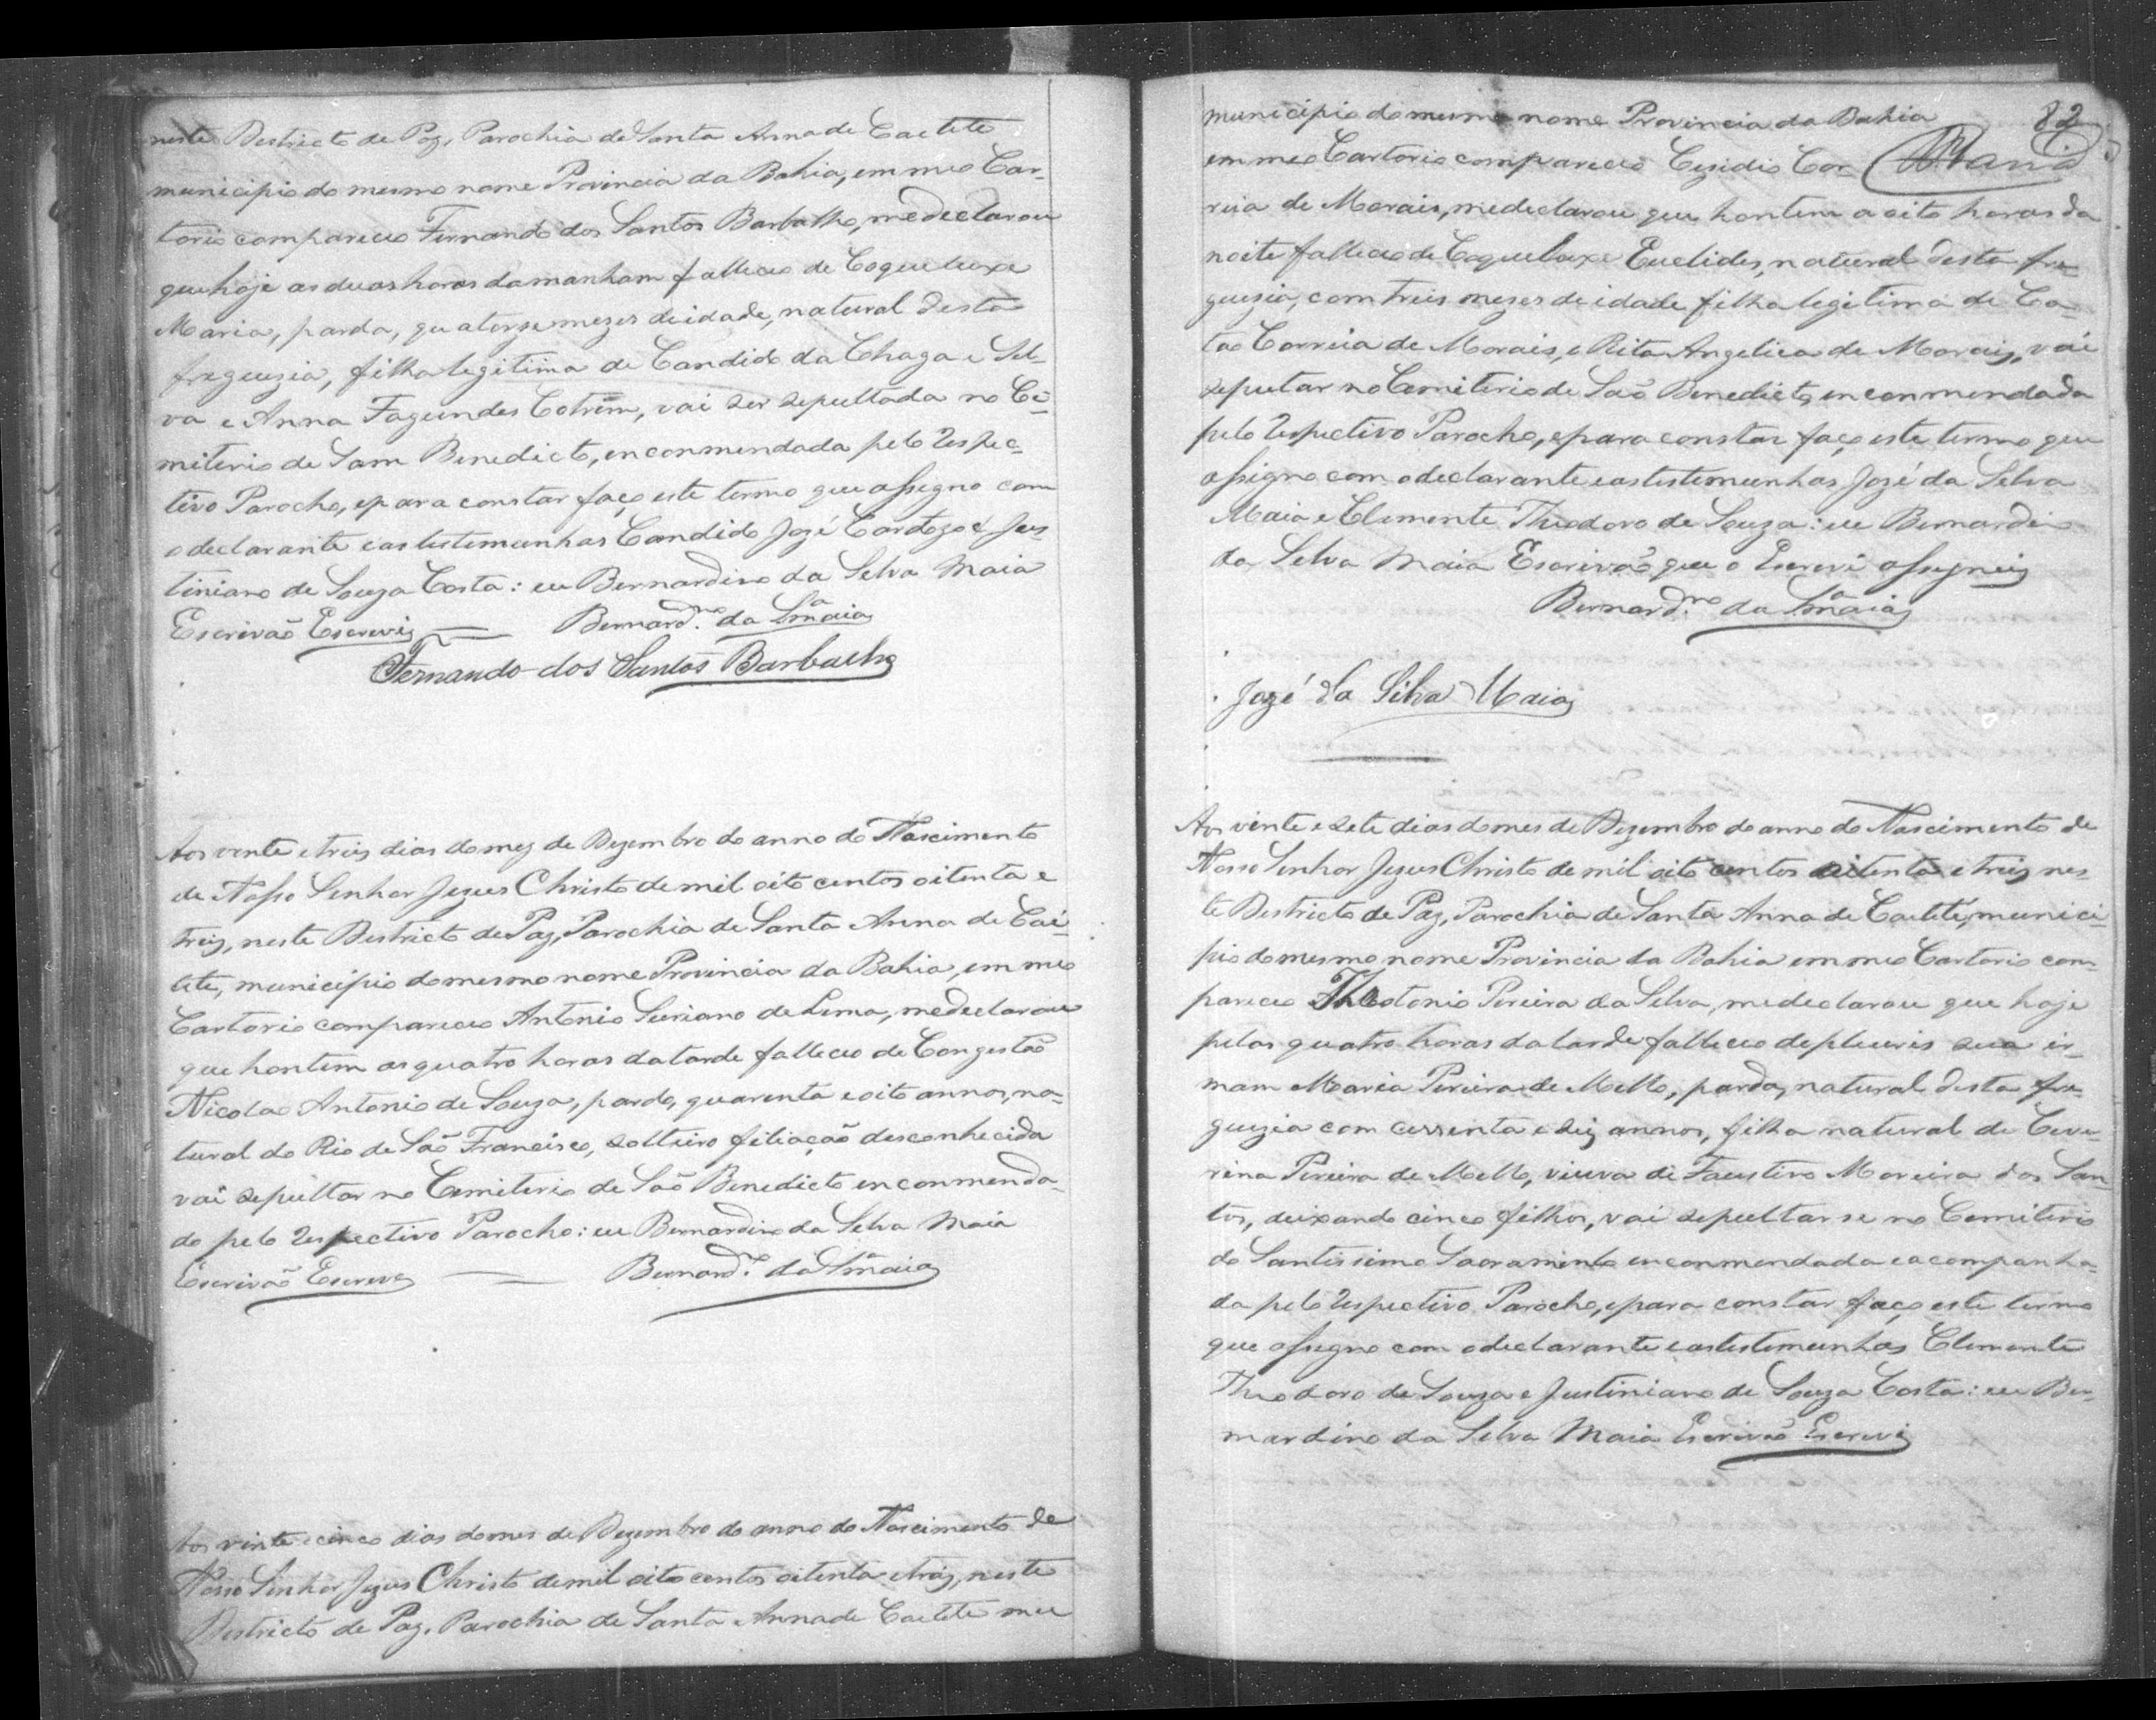 neste Destricto de Paz, Parochia de Santa Anna de Caetete
municipio do mesmo nome Provincia da Bahia, em meo Car-
torio compareceo Fernando dos Santos Barbalho, me declarou
que hoje as duas horas da manham falleceo de Coqueluxe
Maria, parda, quatorze mezes de idade, natural desta
freguezia, filha legitima de Candido da Chaga e Sil-
va e Anna Fagundes Cotrim, vai ser sepultada no Ce-
miterio de Sam Benedicto, enconmendada pelo respec-
tivo Parocho, e para constar faço este termo que assigno com
o declarante e as testemunhas Candido José Cardozo e Jus-
tiniano de Souza Costa: eu Bernardino da Selva Maia
Escrivaõ Escrevi Bernard.no da S.a Maia
Fernando dos Santos Barbalho
Aos vente e treis dias do mez de Dezembro do anno do Nascimento
de Nosso Senhor Jezus Christo de mil oito centos oitenta e
treis, neste Destricto de Paz, Parochia de Santa Anna de Cai-
tete, municipio do mesmo nome Provincia da Bahia, em meo
Cartorio compareceo Antonio Suriano de Lima, me declarou
que hontem as quatro horas da tarde falleceo de Congestaõ
Nicolao Antonio de Souza, pardo, quarenta e oito annos, na-
tural do Rio de Saõ Francisco, solteiro filiaçaõ desconhecida
vai sepultar no Cemiterio de Saõ Benedicto enconmenda-
do pelo respectivo Parocho: eu Bernardino da Selva Maia
Escrivaõ Escrevi Bernard.no da S.a Maia
Aos vinte e cinco dias do mes de Dezembro do anno do Nascimento de
Nosso Senhor Jezus Christo de mil oito centos oitenta e treis, neste
Destricto de Paz, Parochia de Santa Anna de Caetete mu
82
municipio do mesmo nome Provincia da Bahia
em meo Cartorio compareceo Cezidio Cor-
reia de Morais, me declarou que hontem a oito horas da
noite falleceo de Coqueluxe Euclides, natural desta fre-
guezia, com treis mezes de idade filha legitima de Ca-
tao Correia de Morais, e Rita Angelica de Morais, vai
sepultar no Cemiterio de Saõ Benedicto, enconmendada
pelo respectivo Parocho, e para constar faço este termo que
assigno com o declarante e as testemunhas José da Selva
Maia e Clemente Theodoro de Souza: eu Bernardino
da Selva Maia Escrivaõ que o Escrevi assignei
Bernard.no da S.a Maia
Jozé da Silva Maia
Aos vinte e sete dias do mes de Dezembro do anno do Nascimento de
Nosso Senhor Jezus Christo de mil oito centos oitenta e treis, nes-
te Destricto de Paz, Parochia de Santa Anna de Caeteté, munici-
pio do mesmo nome Provincia da Bahia em meo Cartorio com-
pareceo Theotonio Pereira da Selva, me declarou que hoje
pelas quatro horas da tarde falleceo de pleuris sua ir-
mam Maria Pereira de Mello, parda, natural desta fre-
guezia com cessenta e seis annos, filha natural de Ceve-
rina Pereira de Mello, viuva de Faustino Moreira dos San-
tos, deixando cinco filhos, vai sepultar se no Cemiterio
do Santissimo Sacramento enconmendada e acompanha-
da pelo respectivo Parocho, e para constar faço este termo
que assigno com o declarante e as testemunhas Clemente
Theodoro de Souza e Justiniano de Souza Costa: eu Ber-
nardino da Selva Maia Escrivaõ Escrevi